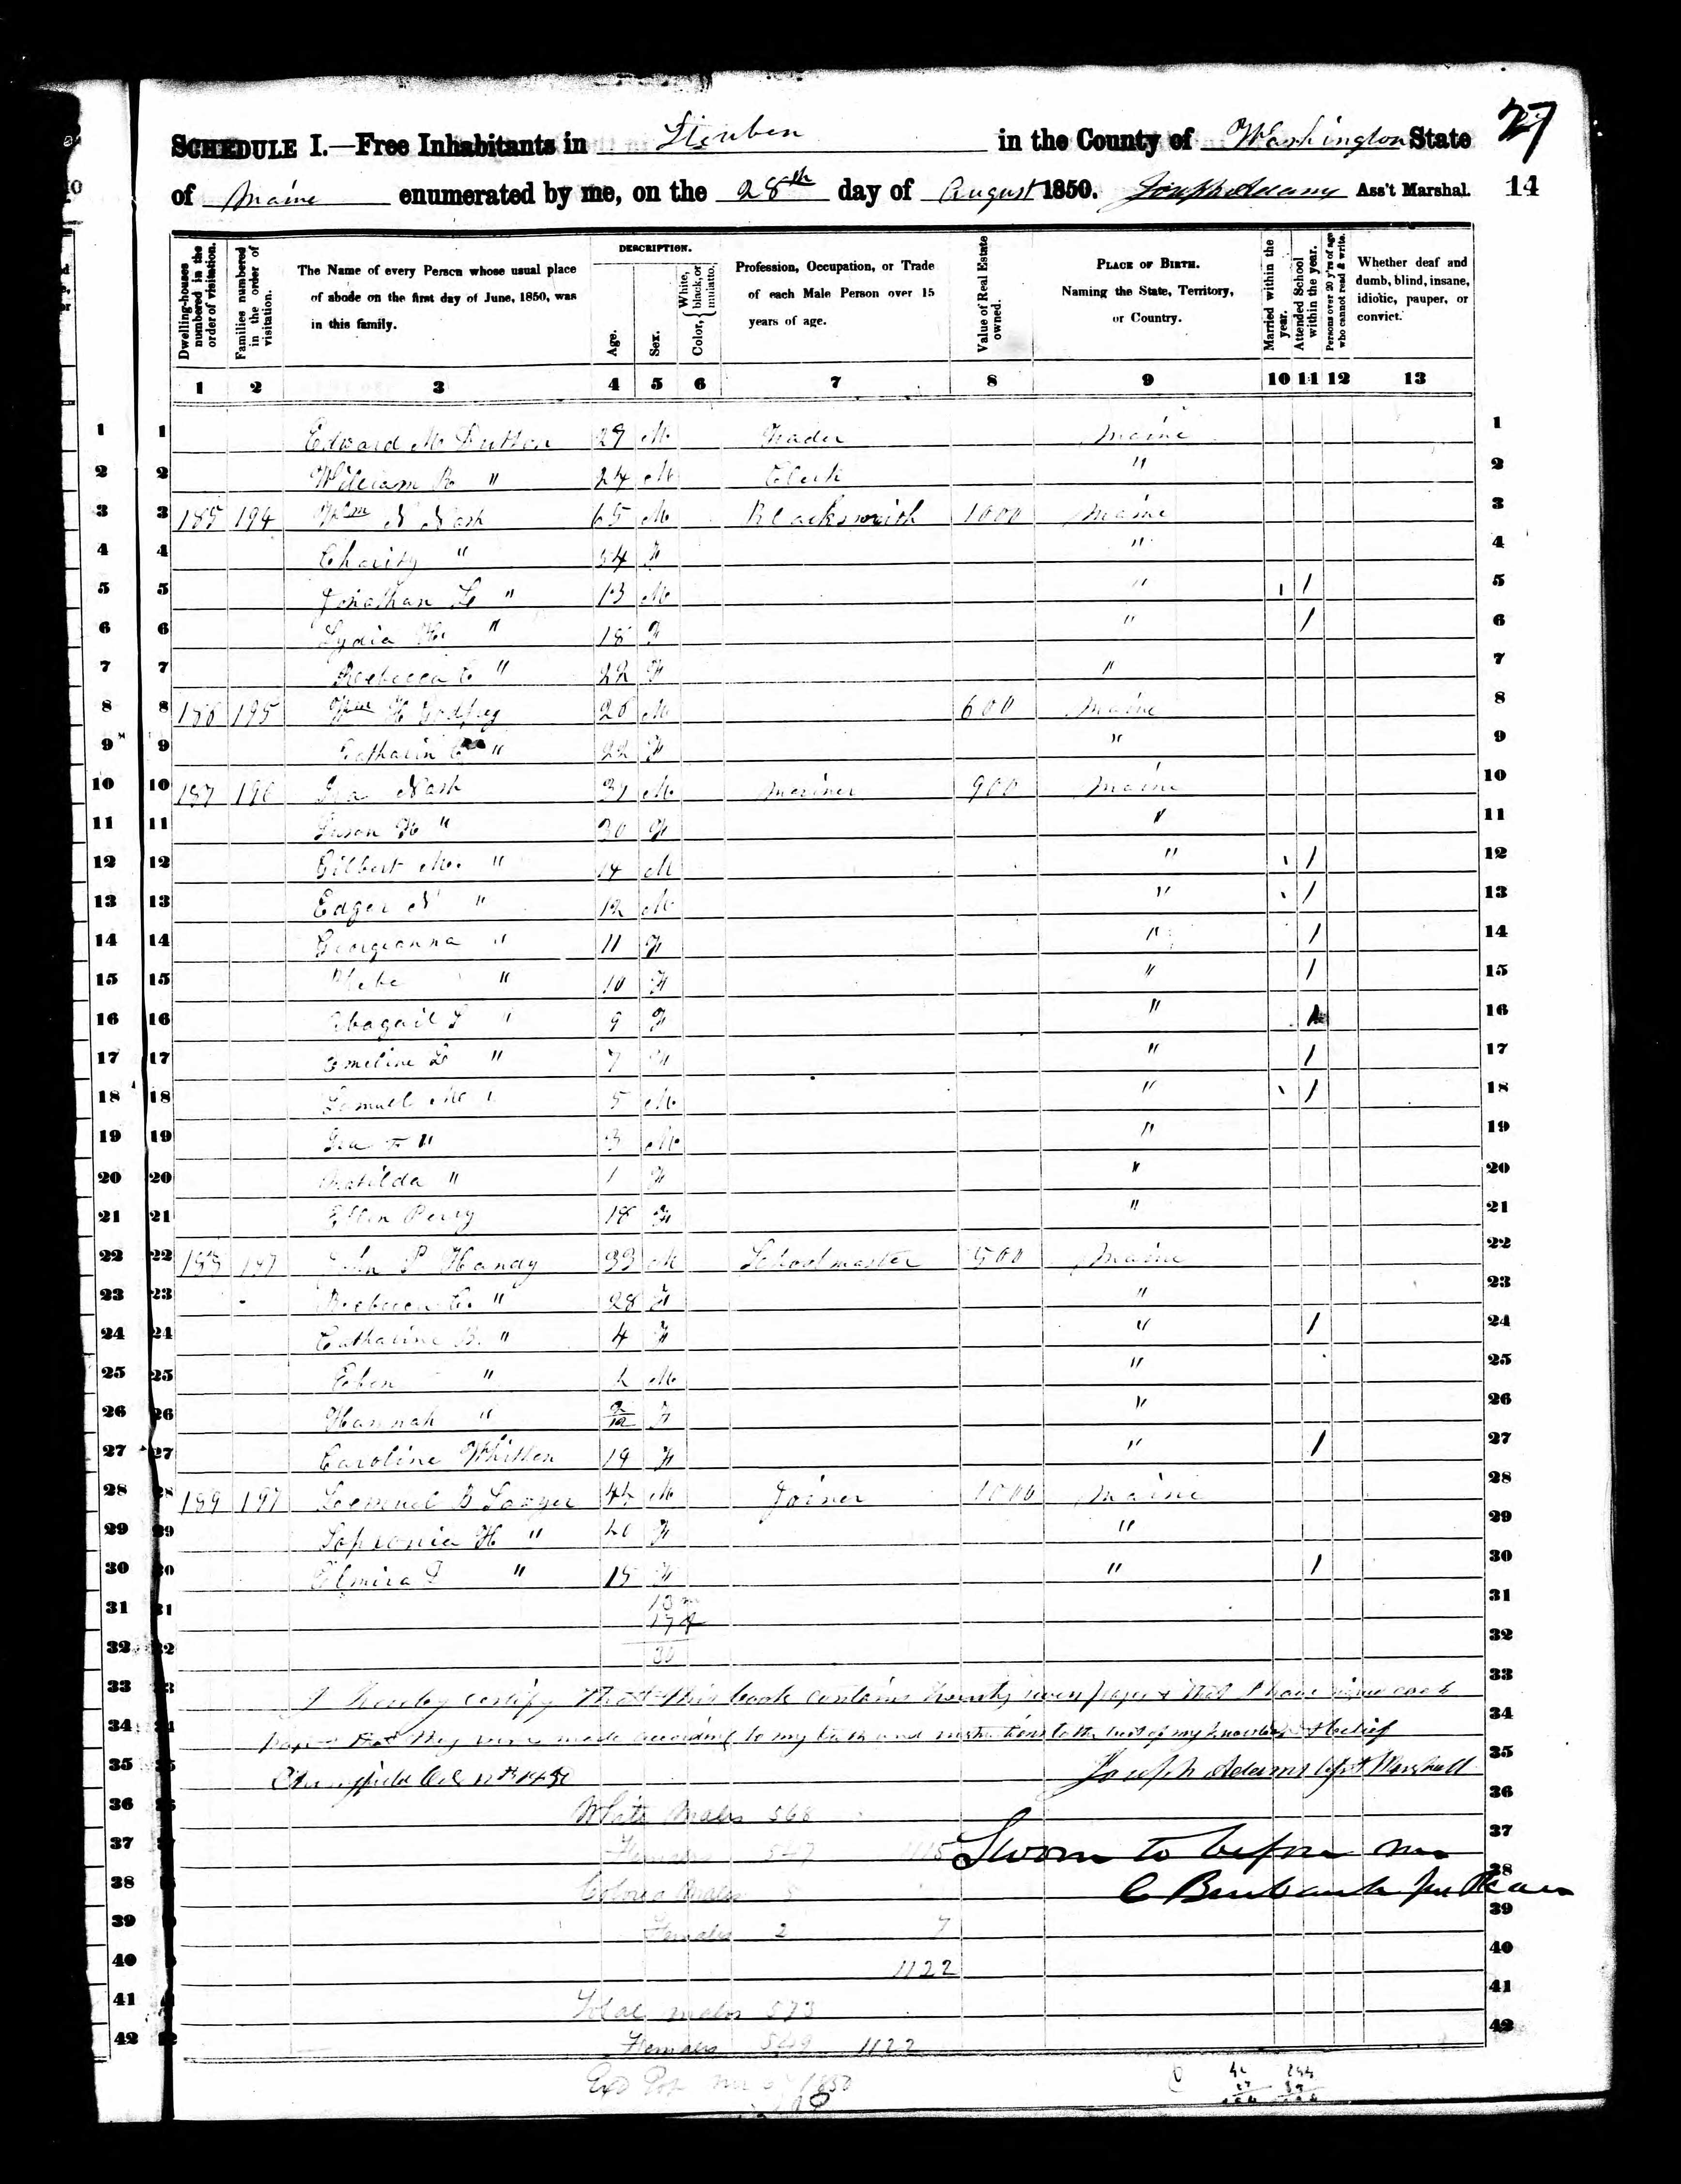 27
SCHEDULE I.—Free Inhabitants in Steuben in the County of Washington State
of Maine enumerated by me, on the 28th day of August 1850. Joseph Adams Ass't Marshal. 14
Dwelling-houses numbered in the order of visitation.
Families numbered in the order of visitation.
The Name of every Person whose usual place of abode on the first day of June, 1850, was in this family.
DESCRIPTION.
Age.
Sex.
Color, { White, black, or mulatto.
Profession, Occupation, or Trade of each Male Person over 15 years of age.
Value of Real Estate owned.
PLACE OF BIRTH. Naming the State, Territory, or Country.
Married within the year.
Attended School within the year.
Persons over 20 y'rs of age who cannot read & write.
Whether deaf and dumb, blind, insane, idiotic, pauper, or convict.
1 2 3 4 5 6 7 8 9 10 11 12 13
1 1 Edward M Dutton 29 M Trader Maine 1
2 2 William R " 24 M Clerk " 2
3 3 185 194 Wm N Nash 65 M Blacksmith 1000 Maine 3
4 4 Charity " 54 F " 4
5 5 Jonathan L " 13 M " 1 5
6 6 Lydia H. " 18 F " 1 6
7 7 Rebecca C " 22 F " 7
8 8 186 195 Wm H Godfrey 26 M 600 Maine 8
9 9 Catharin C " 22 F " 9
10 10 187 196 Ira Nash 37 M Mariner 900 Maine 10
11 11 Susan H " 30 F " 11
12 12 Gilbert M. " 14 M " 1 12
13 13 Edger N " 12 M " 1 13
14 14 Georgeanna " 11 F " 1 14
15 15 Phebe " 10 F " 1 15
16 16 Abagail L " 9 F " 1 16
17 17 Emeline L " 7 F " 1 17
18 18 Samuel M " 5 M " 1 18
19 19 Ira F " 3 M " 19
20 20 Matilda " 1 F " 20
21 21 Ellen Perry 18 F " 21
22 22 188 197 John P Handy 33 M Schoolmaster 500 Maine 22
23 23 Rebecca C. " 28 F " 23
24 24 Catharine B. " 4 F " 1 24
25 25 Eben " 2 M " 25
26 26 Hannah " 2/12 F " 26
27 27 Caroline Whitten 19 F " 1 27
28 28 189 197 Lemuel B Sawyer 44 M Joiner 1000 Maine 28
29 29 Sopronia H " 40 F " 29
30 30 Elmira " 15 F " 1 30
31 31 13 m 31
17 f
32 32 30 32
33 I hereby certify that this book contains twenty seven pages & that I have signed each 33
34 page & that they were made according to my oath and instructions to the best of my knowledge & belief 34
35 Joseph Adams Asst Marshall 35
36 White Males 568 36
37 Females 547 1115 Sworn to before me 37
38 Colored Males 5 C Burbank Jus Peace 38
39 Females 2 7 39
40 1122 40
41 Total males 573 41
42 Females 549 1122 42